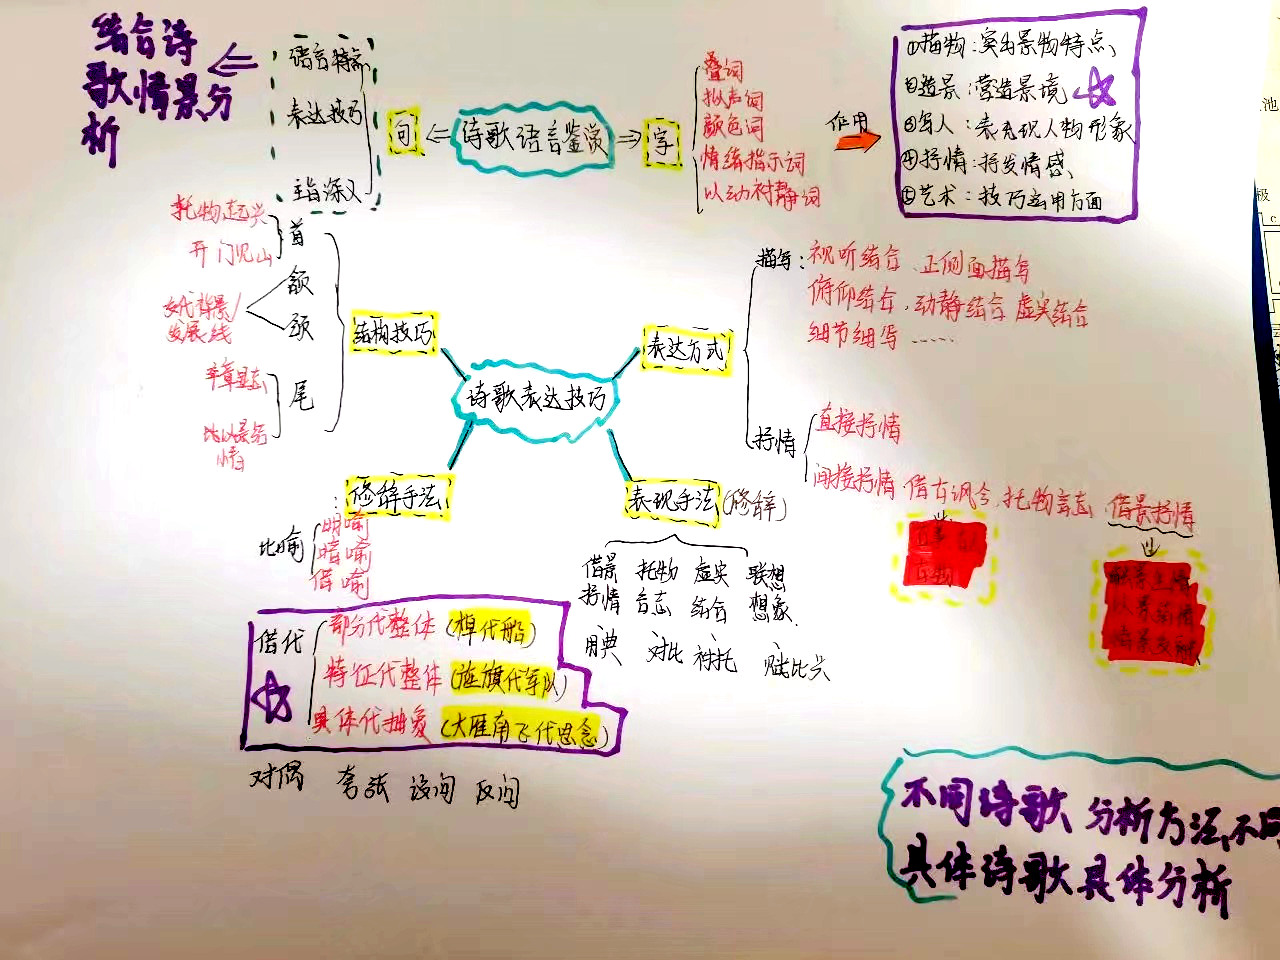 结合诗
歌情景分
析
语言特点
表达技巧
主旨深入
句
诗歌语言鉴赏
字
叠词
拟声词
颜色词
情绪指示词
以动衬静词
作用
①描物：突出景物特点、
②造景：营造景境
③写人：表充现人物形象
④抒情：抒发情感、
⑤艺术：技巧运用方面
托物起兴
开门见山
首
颔
颈
发展线
卒章显志
尾
情
结构技巧
诗歌表达技巧
表达方式
描写：视听结合、正侧面描写
俯仰结合，动静结合 虚实结合
细节细写 ······
抒情
直接抒情
间接抒情 借古讽今，托物言志 借景抒情
修辞手法
比喻
明喻
暗喻
借喻
表现手法(修辞)
借景 托物 虚实 联想
抒情 言志 结合 想象
用典 对比 衬托 赋比兴
借代
部分代整体(棹代船)
特征代整体(旌旗代军队)
具体代抽象(大雁南飞代思念)
对偶 夸张 设问 反问
不同诗歌 分析方法不同
具体诗歌具体分析